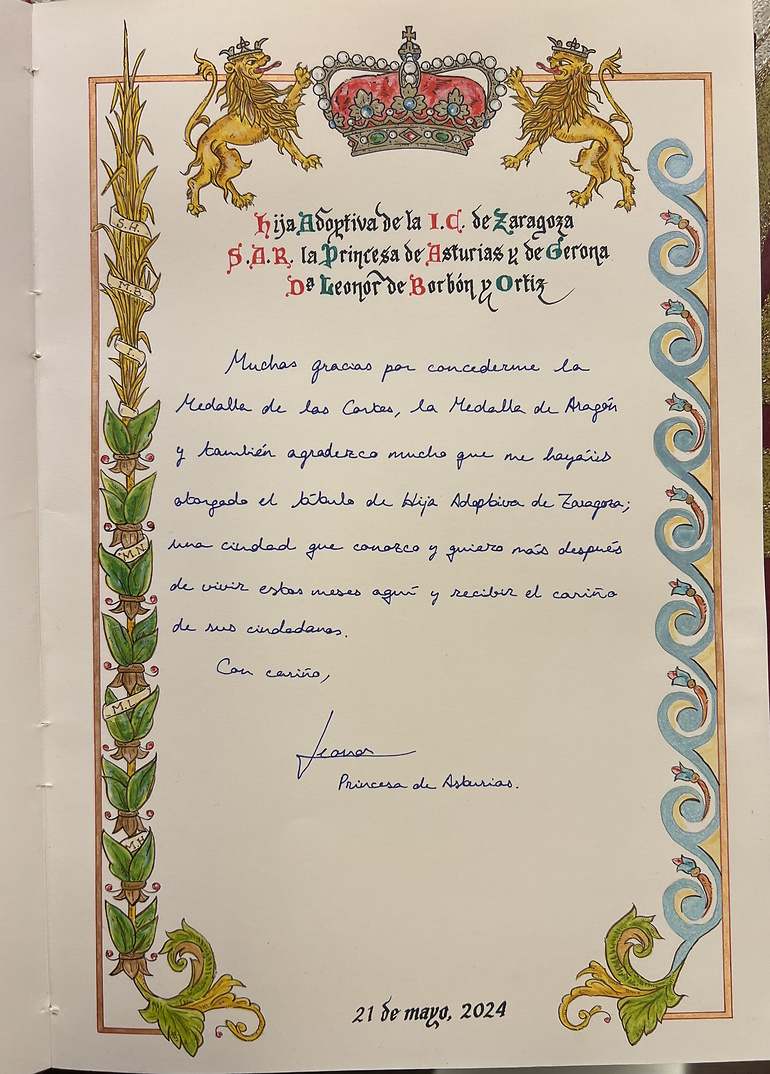 Hija Adoptiva de la I.C. de Zaragoza
S.A.R. la Princesa de Asturias y de Gerona
Dª Leonor de Borbón y Ortiz
Muchas gracias por concederme la
Medalla de las Cortes, la Medalla de Aragón
y también agradezco mucho que me hayáis
otorgado el título de Hija Adoptiva de Zaragoza;
una ciudad que conozco y quiero más después
de vivir estos meses aquí y recibir el cariño
de sus ciudadanos.
Con cariño,
Leonor
Princesa de Asturias.
S.H.
M.B.
I.
M.N.
M.L.
M.H.
21 de mayo, 2024